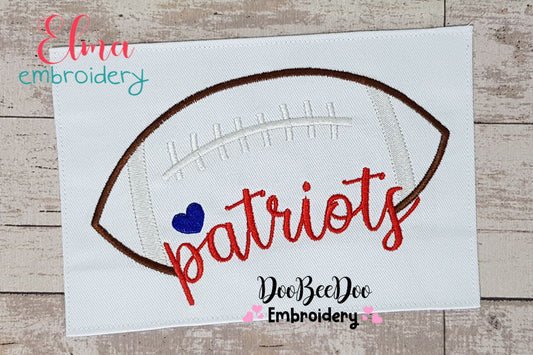 Elma
embroidery
patriots
DooBeeDoo
Embroidery